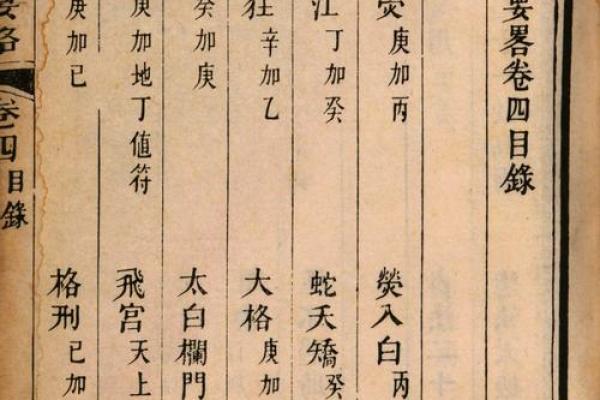 要畧卷四目錄
庚加丙 熒入白 丙
江 丁加癸 蛇夭矯 癸
狂 辛加乙 大格 庚加
癸加庚 太白欄門
庚加地丁值符 飛宮 天上
庚加已 格刑 已加
卷四目錄